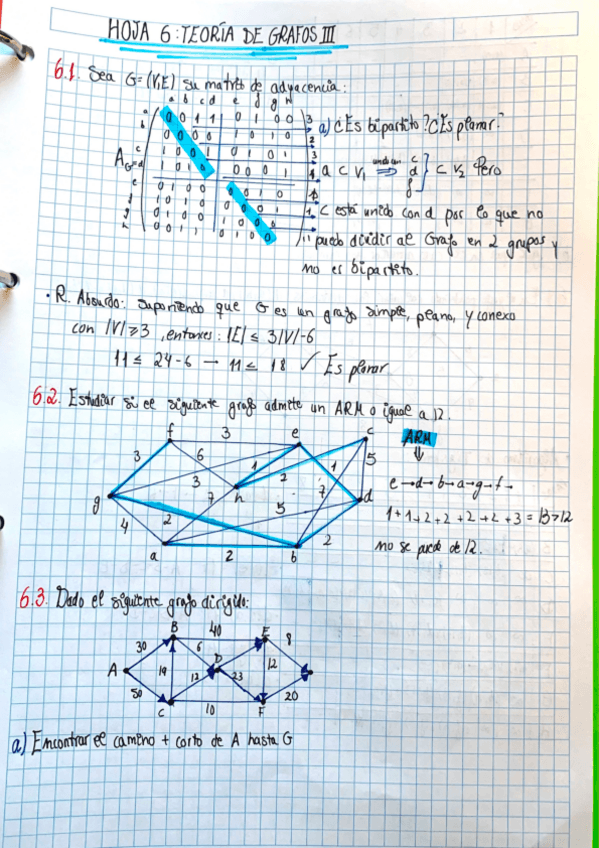 HOJA 6: TEORÍA DE GRAFOS III
6.1. Sea G=(V,E) su matriz de adyacencia:
a b c d e f g h
a 0 0 1 1 0 1 0 0 3
a) ¿Es bipartito? ¿Es planar?
a ⊂ V₁ ⇒ c d f } ⊂ V₂ Pero
c está unido con d por lo que no
puedo dividir al Grafo en 2 grupos y
no es bipartito.
· R. Absurdo: suponiendo que G es un grafo simple, plano, y conexo
con |V|≥3, entonces: |E| ≤ 3|V|-6
11 ≤ 24-6 → 11 ≤ 18 ✓ Es planar
6.2. Estudiar si el siguiente grafo admite un ARM o igual a 12.
f 3 e c ARM
3 6 1 2 1 5
g 3 h 7 d
e→d→b→a→g→f→
4 2 7 5 2
1+1+2+2+2+2+3=13>12
a 2 b
no se puede de 12.
6.3. Dado el siguiente grafo dirigido:
B 40 E 8
30 6 D 12
A 19 12 23 20
50 C 10 F
a) Encontrar el camino + corto de A hasta G